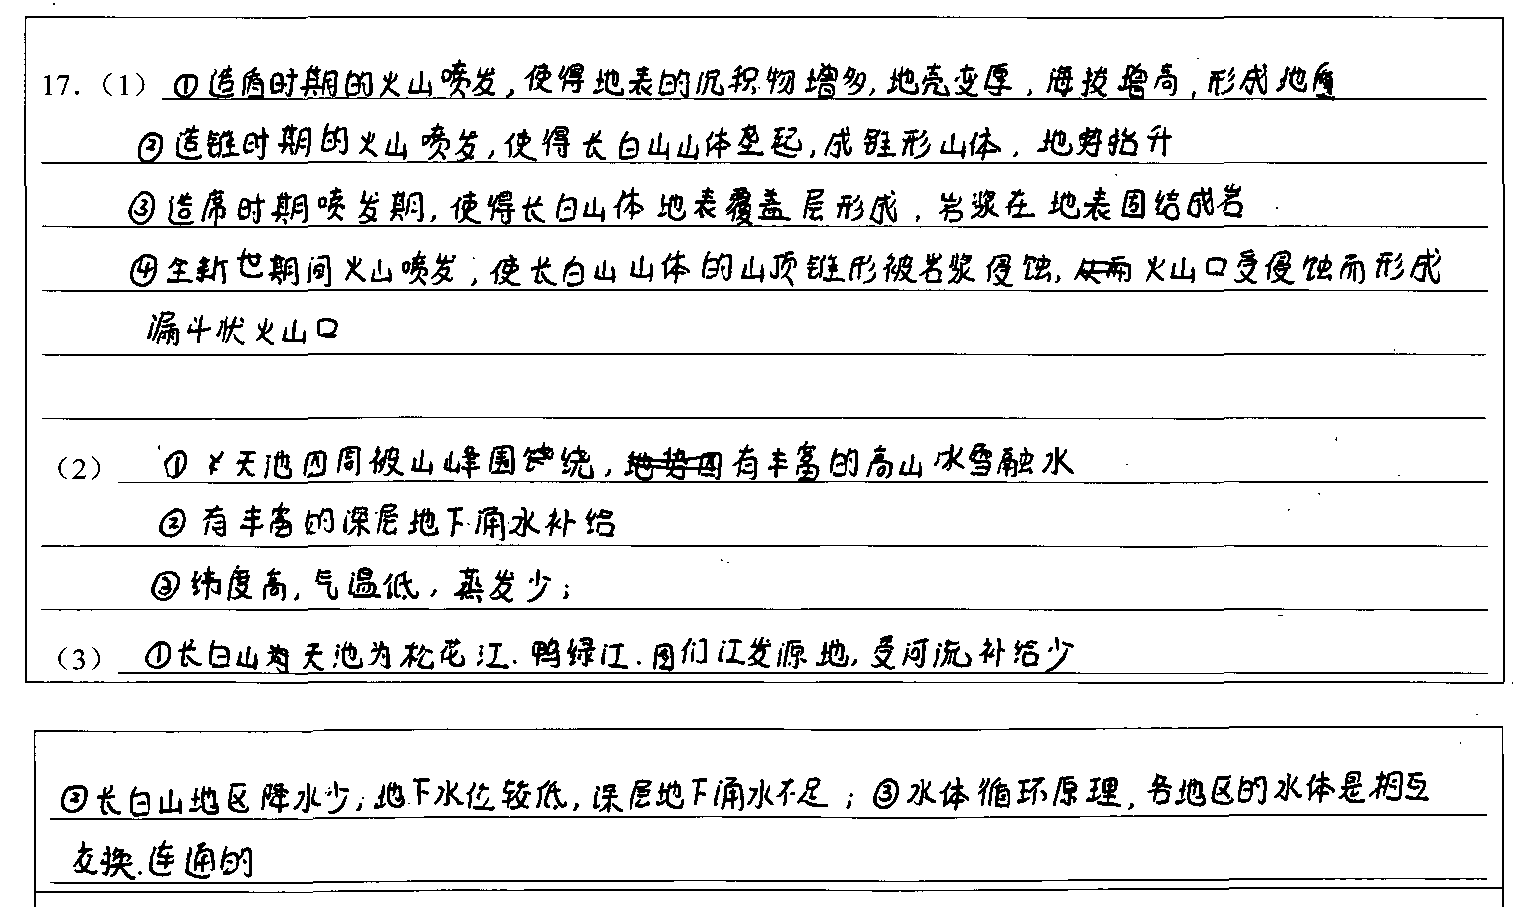 17.（1）①造盾时期的火山喷发,使得地表的沉积物增多,地壳变厚,海拔增高,形成地盾
②造锥时期的火山喷发,使得长白山山体垄起,成锥形山体,地势抬升
③造席时期喷发期,使得长白山体地表覆盖层形成,岩浆在地表固结成岩
④全新世期间火山喷发,使长白山山体的山顶锥形被岩浆侵蚀,火山口受侵蚀而形成
漏斗状火山口
（2）①天池四周被山峰围绕,有丰富的高山冰雪融水
②有丰富的深层地下涌水补给
③纬度高,气温低,蒸发少;
（3）①长白山天池为松花江.鸭绿江.图们江发源地,受河流补给少
②长白山地区降水少;地下水位较低,深层地下涌水不足;③水体循环原理,各地区的水体是相互
交换.连通的